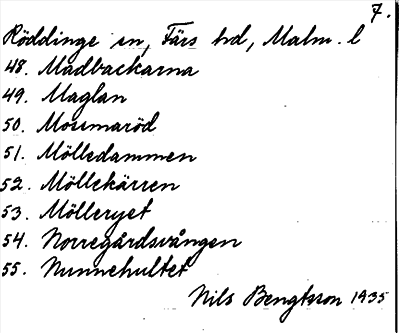 7.
Röddinge sn, Färs hd, Malm. l
48. Madbackarna
49. Maglan
50. Mossmaröd
51. Mölledammen
52. Möllekärren
53. Mölleryet
54. Norregårdsvången
55. Nunnehultet
Nils Bengtsson 1935